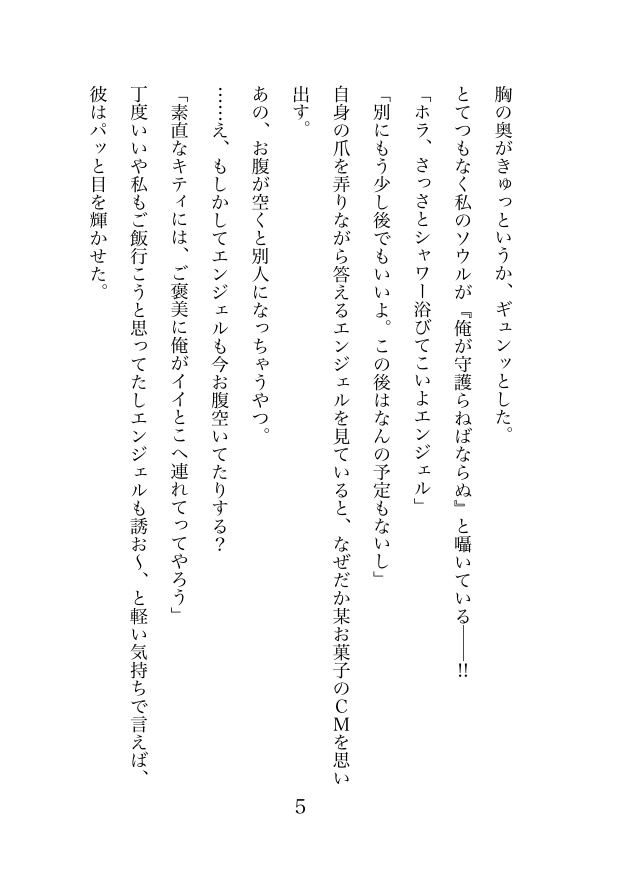 胸の奥がきゅっというか、ギュンッとした。
とてつもなく私のソウルが『俺が守護らねばならぬ』と囁いている――!!
「ホラ、さっさとシャワー浴びてこいよエンジェル」
「別にもう少し後でもいいよ。この後はなんの予定もないし」
自身の爪を弄りながら答えるエンジェルを見ていると、なぜだか某お菓子のCMを思い
出す。
あの、お腹が空くと別人になっちゃうやつ。
……え、もしかしてエンジェルも今お腹空いてたりする？
「素直なキティには、ご褒美に俺がイイとこへ連れてってやろう」
丁度いいや私もご飯行こうと思ってたしエンジェルも誘お〜、と軽い気持ちで言えば、
彼はパッと目を輝かせた。
5